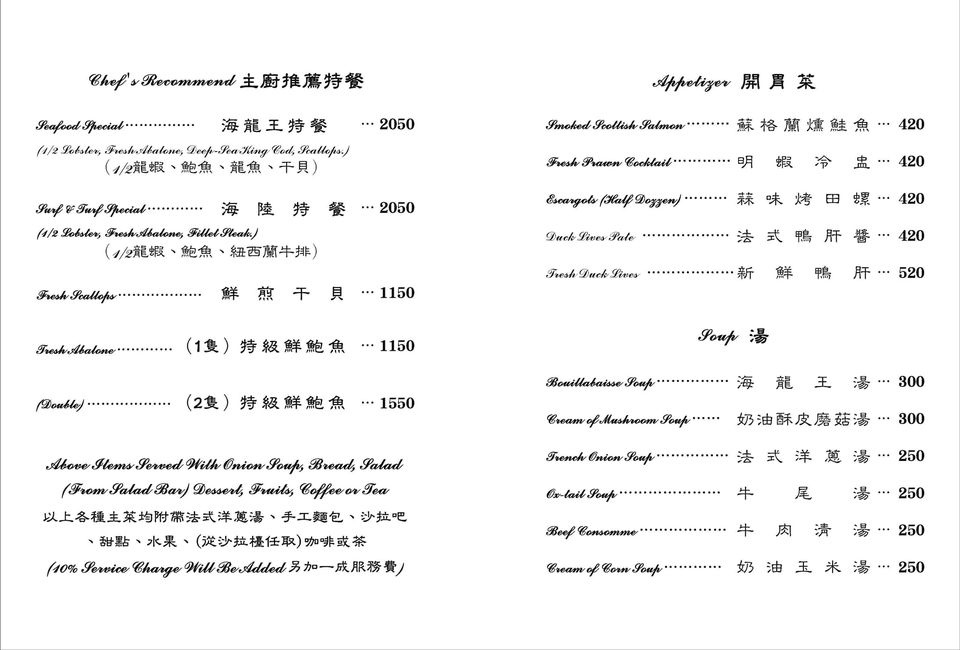 Chef's Recommend 主廚推薦特餐
Seafood Special ··············· 海龍王特餐 ··· 2050
(1/2 Lobster, Fresh Abalone, Deep-Sea King Cod, Scallops.)
（1/2龍蝦、鮑魚、龍魚、干貝）
Surf & Turf Special ············ 海陸特餐 ··· 2050
(1/2 Lobster, Fresh Abalone, Fillet Steak.)
（1/2龍蝦、鮑魚、紐西蘭牛排）
Fresh Scallops ·················· 鮮煎干貝 ··· 1150
Fresh Abalone ············ （1隻）特級鮮鮑魚 ··· 1150
(Double) ·················· （2隻）特級鮮鮑魚 ··· 1550
Above Items Served With Onion Soup, Bread, Salad
(From Salad Bar) Dessert, Fruits, Coffee or Tea
以上各種主菜均附帶法式洋蔥湯、手工麵包、沙拉吧
、甜點、水果、(從沙拉檯任取)咖啡或茶
(10% Service Charge Will Be Added 另加一成服務費)
Appetizer 開胃菜
Smoked Scottish Salmon ········· 蘇格蘭燻鮭魚 ··· 420
Fresh Prawn Cocktail ············ 明蝦冷盅 ··· 420
Escargots (Half Dozzen) ········· 蒜味烤田螺 ··· 420
Duck Lives Pate ·················· 法式鴨肝醬 ··· 420
Fresh Duck Lives ·················· 新鮮鴨肝 ··· 520
Soup 湯
Bouillabaisse Soup ··············· 海龍王湯 ··· 300
Cream of Mushroom Soup ······ 奶油酥皮磨菇湯 ··· 300
French Onion Soup ··············· 法式洋蔥湯 ··· 250
Ox-tail Soup ····················· 牛尾湯 ··· 250
Beef Consomme ·················· 牛肉清湯 ··· 250
Cream of Corn Soup ············ 奶油玉米湯 ··· 250